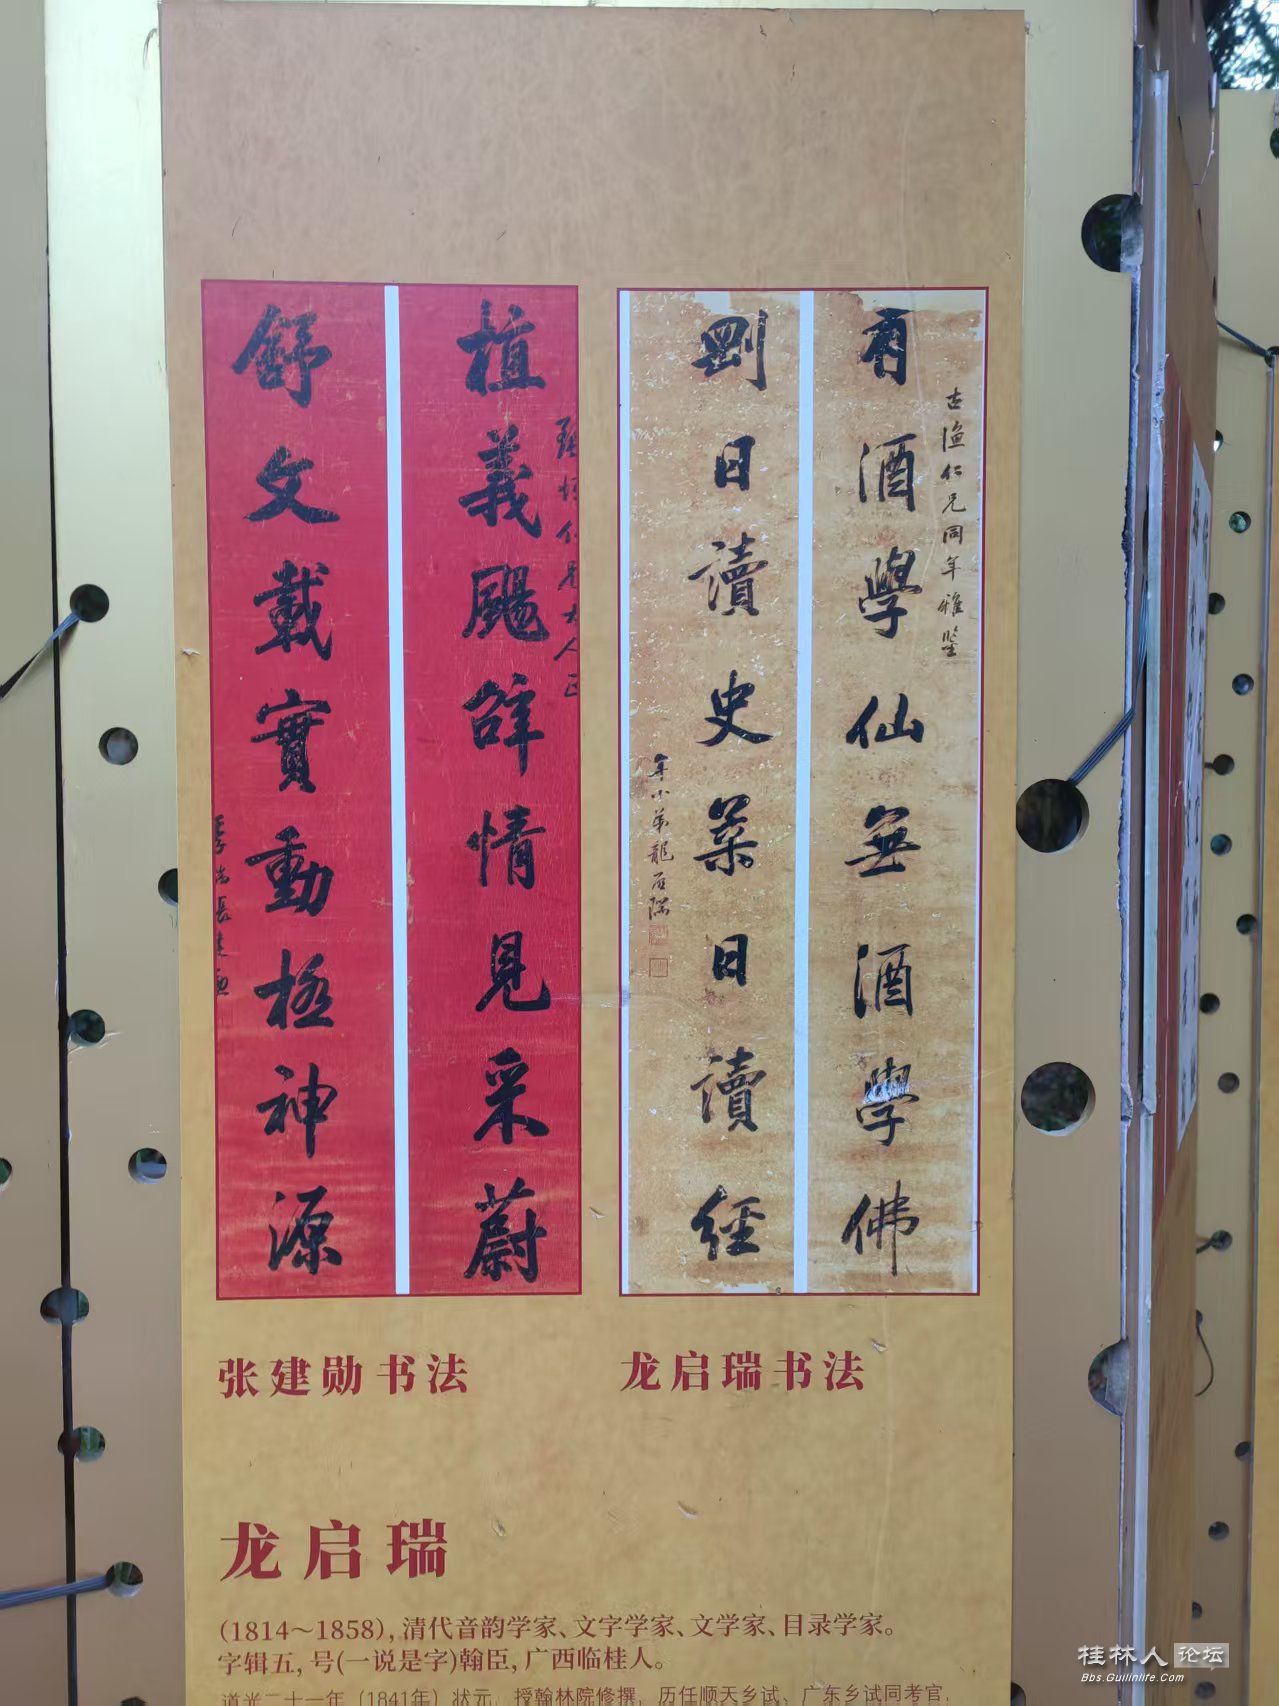 有酒學仙無酒學佛
古漁仁兄同年雅鑒
剛日讀史柔日讀經
年小弟龍启瑞
植義颺辭情見采蔚
仁兄大人正
舒文載實動極神源
张建勋书法
龙启瑞书法
龙启瑞
(1814～1858),清代音韵学家、文字学家、文学家、目录学家。
字辑五,号(一说是字)翰臣,广西临桂人。
道光二十一年（1841年）状元，授翰林院修撰，历任顺天乡试、广东乡试同考官，
桂林人论坛
Bbs.Guilinlife.Com